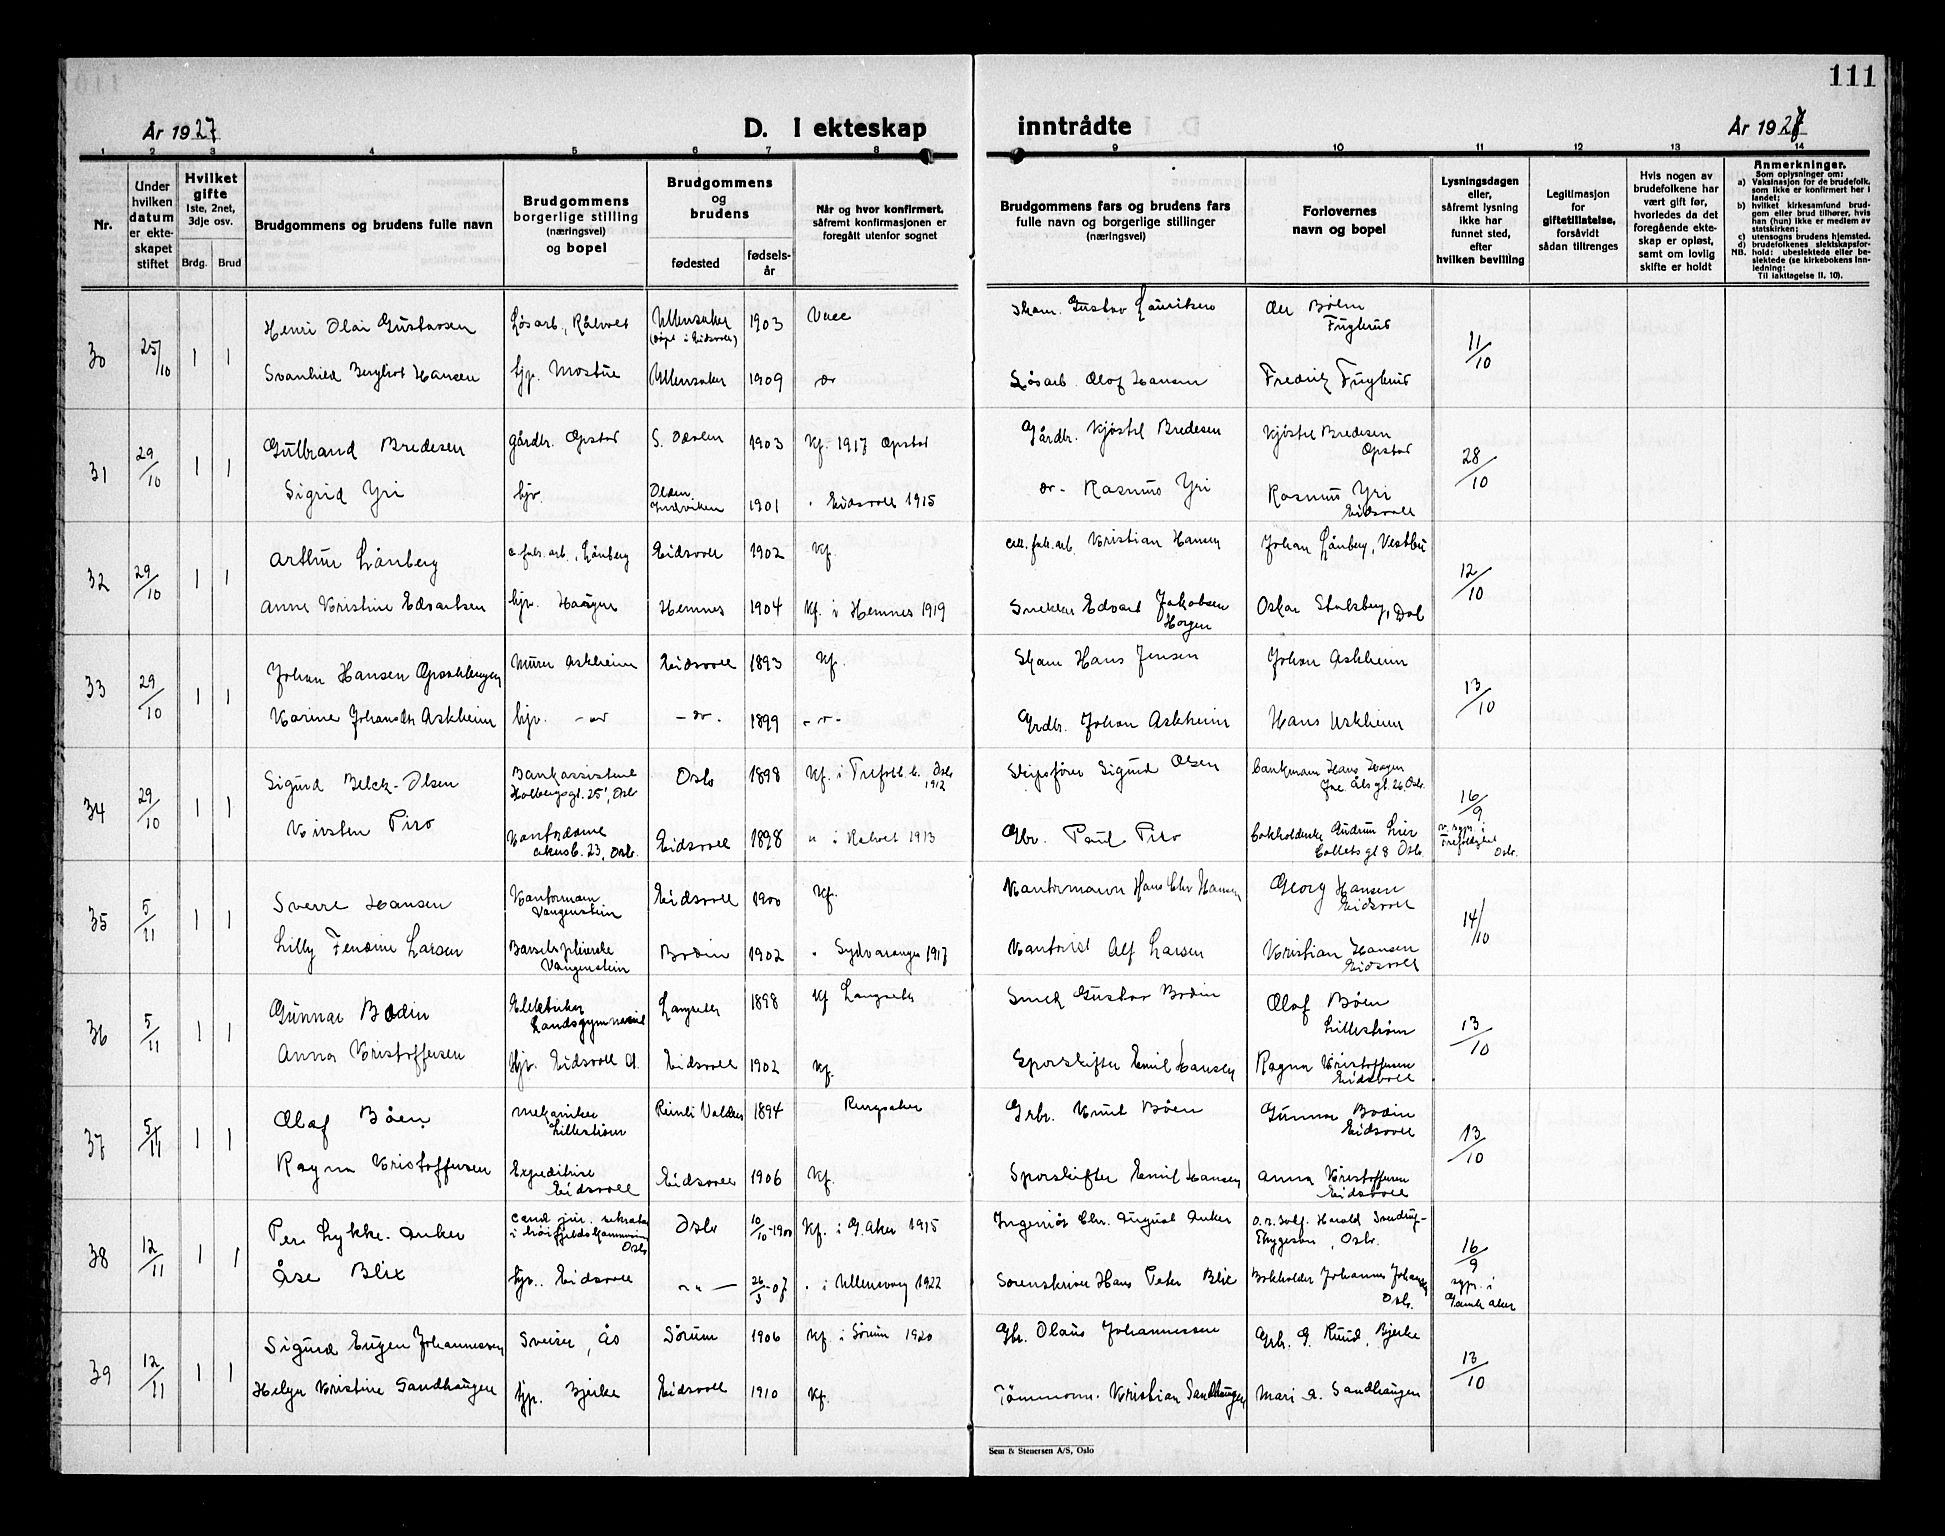 111
År 1927
D. I ekteskap inntrådte
År 1927
1 2 3 4 5 6 7 8 9 10 11 12 13 14
Nr.
Under hvilken datum er ekteskapet stiftet
Hvilket gifte
1ste, 2net, 3dje osv.
Brdg. Brud
Brudgommens og brudens fulle navn
Brudgommens borgerlige stilling (næringsvei) og bopel
Brudgommens og brudens
fødested
fødselsår
Når og hvor konfirmert, såfremt konfirmasjonen er foregått utenfor sognet
Brudgommens fars og brudens fars fulle navn og borgerlige stillinger (næringsvei)
Forlovernes navn og bopel
Lysningsdagen eller, såfremt lysning ikke har funnet sted, efter hvilken bevilling
Legitimasjon for giftetillatelse, forsåvidt sådan tiltrenges
Hvis nogen av brudefolkene har vært gift før, hvorledes da det foregående ekteskap er opløst, samt om lovlig skifte er holdt
Anmerkninger.
Som oplysninger om:
a) Vaksinasjon for de brudefolk, som ikke er konfirmert her i landet;
b) hvilket kirkesamfund brudgom eller brud tilhører, hvis han (hun) ikke er medlem av statskirken;
c) utensogns brudens hjemsted.
d) brudefolkenes slektskapsforhold: ubeslektede eller beslektede (se kirkebokens innledning:
NB. Til iakttagelse II, 10).
30 25/10 1 1 Henri Olai Gustavsen Løsarb., Råholt Ullensaker (døpt i Eidsvoll) 1903 Vacc Gustav Lauritsen Fuglerud 11/10
Svanhild Bergliot Hansen hjv. Mostue Ullensaker 1909 do Løsarb. Olaf Hansen Fredrik Fuglerud
31 29/10 1 1 Gulbrand Bredesen gårdbr. Opstad S. Odalen 1903 Kf. 1917 Opstad Gårdbr. Kjøstel Bredesen Kjøstel Bredesen Opstad 28/10
Sigrid Yri hjv. Olden 1901 " Eidsvoll 1915 do - Rasmus Yri Rasmus Yri Eidsvoll
32 29/10 1 1 Arthur Lånberg Lånberg Eidsvoll 1902 Kf. Kristian Hansen Johan Lånberg, Vestbu 12/10
Anna Kristine Edvardsen hjv. Haagen Hemnes 1904 Kf. i Hemnes 1919 Snekker Edvard Jakobsen Horgen Oskar Stolsberg, Dal
33 29/10 1 1 Johan Hansen Opsahlengen Murer Askheim Eidsvoll 1893 Kf. Hans Jensen Johan Askheim 13/10
Karine Johansdtr Askheim hjv. - do - do - 1899 - " - Grdbr. Johan Askheim Hans Askheim
34 29/10 1 1 Sigurd Belck-Olsen Bankassistent Holbergsgt. 25', Oslo Oslo 1898 Kf. i Trefoldh. k. Oslo 1912 Skipsfører Sigurd Olsen 16/9
Kirsten Piro Kontordame Akersb. 23, Oslo. Eidsvoll 1898 " i 1913 Gbr. Paul Piro Bokholderske Gudrun Lier Collets gt 8 Oslo. Trefoldighet Oslo.
35 5/11 1 1 Sverre Hansen Kontormann Vangenstein Eidsvoll 1900 Kf. Kontormann Hans Chr Hansen Georg Hansen Eidsvoll 14/10
Lilly Fendine Larsen Barselspleierske Vangenstein Bodin 1902 " Sydvaranger 1917 Kontorist Alf Larsen Kristian Hansen Eidsvoll
36 5/11 1 1 Gunnar Bodin Elektriker Landsgymnasiet Langseth 1898 Kf Langseth Smed Gustav Bodin Olaf Bøen Lillestrøm 13/10
Anna Kristoffersen hjv. Eidsvoll Eidsvoll 1902 Kf. Sporskifter Emil Hansen Ragna Kristoffersen Eidsvoll
37 5/11 1 1 Olaf Bøen Mekaniker Lillestrøm Reinli Valdres 1894 Ringsaker Grbr. Knut Bøen Gunnar Bodin Eidsvoll 13/10
Ragna Kristoffersen Expeditrise Eidsvoll Eidsvoll 1906 Kf. Sporskifter Emil Hansen Anna Kristoffersen Eidsvoll
38 12/11 1 1 Per Lykke-Anker cand. jur. sekretær i høifjeldskommisjon Oslo Oslo 10/10-1900 Kf. i G. Aker 1915 Ingeniør Chr. August Anker o.r.sakf. Harald Sverdrup-Thygeson, Oslo. 16/9
Åse Blix hjv. Eidsvoll - " - 26/3-07 " i Ullensvang 1922 Sorenskriver Hans Peter Blix Bokholder Johannes Oslo. i Gamle Aker
39 12/11 1 1 Sigurd Eugen Johannessen Sveiser, Ås Sørum 1906 Kf. i Sørum 1920 Gbr. Olaus Johannessen Grbr. G. Ruud, Bjerke 13/10
Helga Kristine Sandhaugen hjv. Bjerke Eidsvoll 1910 Kf. Tømmerm. Kristian Sandhaugen Mari A. Sandhaugen
Sem & Stenersen A/S, Oslo